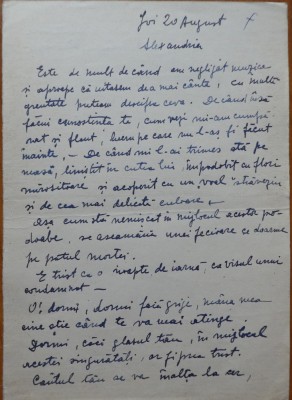 Joi 20 August
Alexandria
Este de mult de când am negligat muzica
și aproape că uitasem de a mai cânta, cu multă
greutate puteam descifra ceva. De când însă
făcui cunoștința ta, cumveți mi-am cumpă-
rat și flaut, lucru pe care nu l-aș fi făcut
înainte, – De când mi l-ai trimes stă pe
masă, liniștit în cutia lui, împodobit cu flori
mirositoare și acoperit cu un voal
și de cea mai delicată culoare,
Așa cum stă nemișcat în mijlocul acestor po-
doabe, se aseamănă unei fecioare ce doarme
pe patul morței.
E trist ca o noapte de iarnă, ca visul unui
condamnat –
O! dormi, dormi fără grije, mâna mea
cine știe când te va mai atinge.
Dormi, căci glasul tău, în mijlocul
acestei singurătăți, ar fi prea trist.
Cântul tău se va înălța la cer,